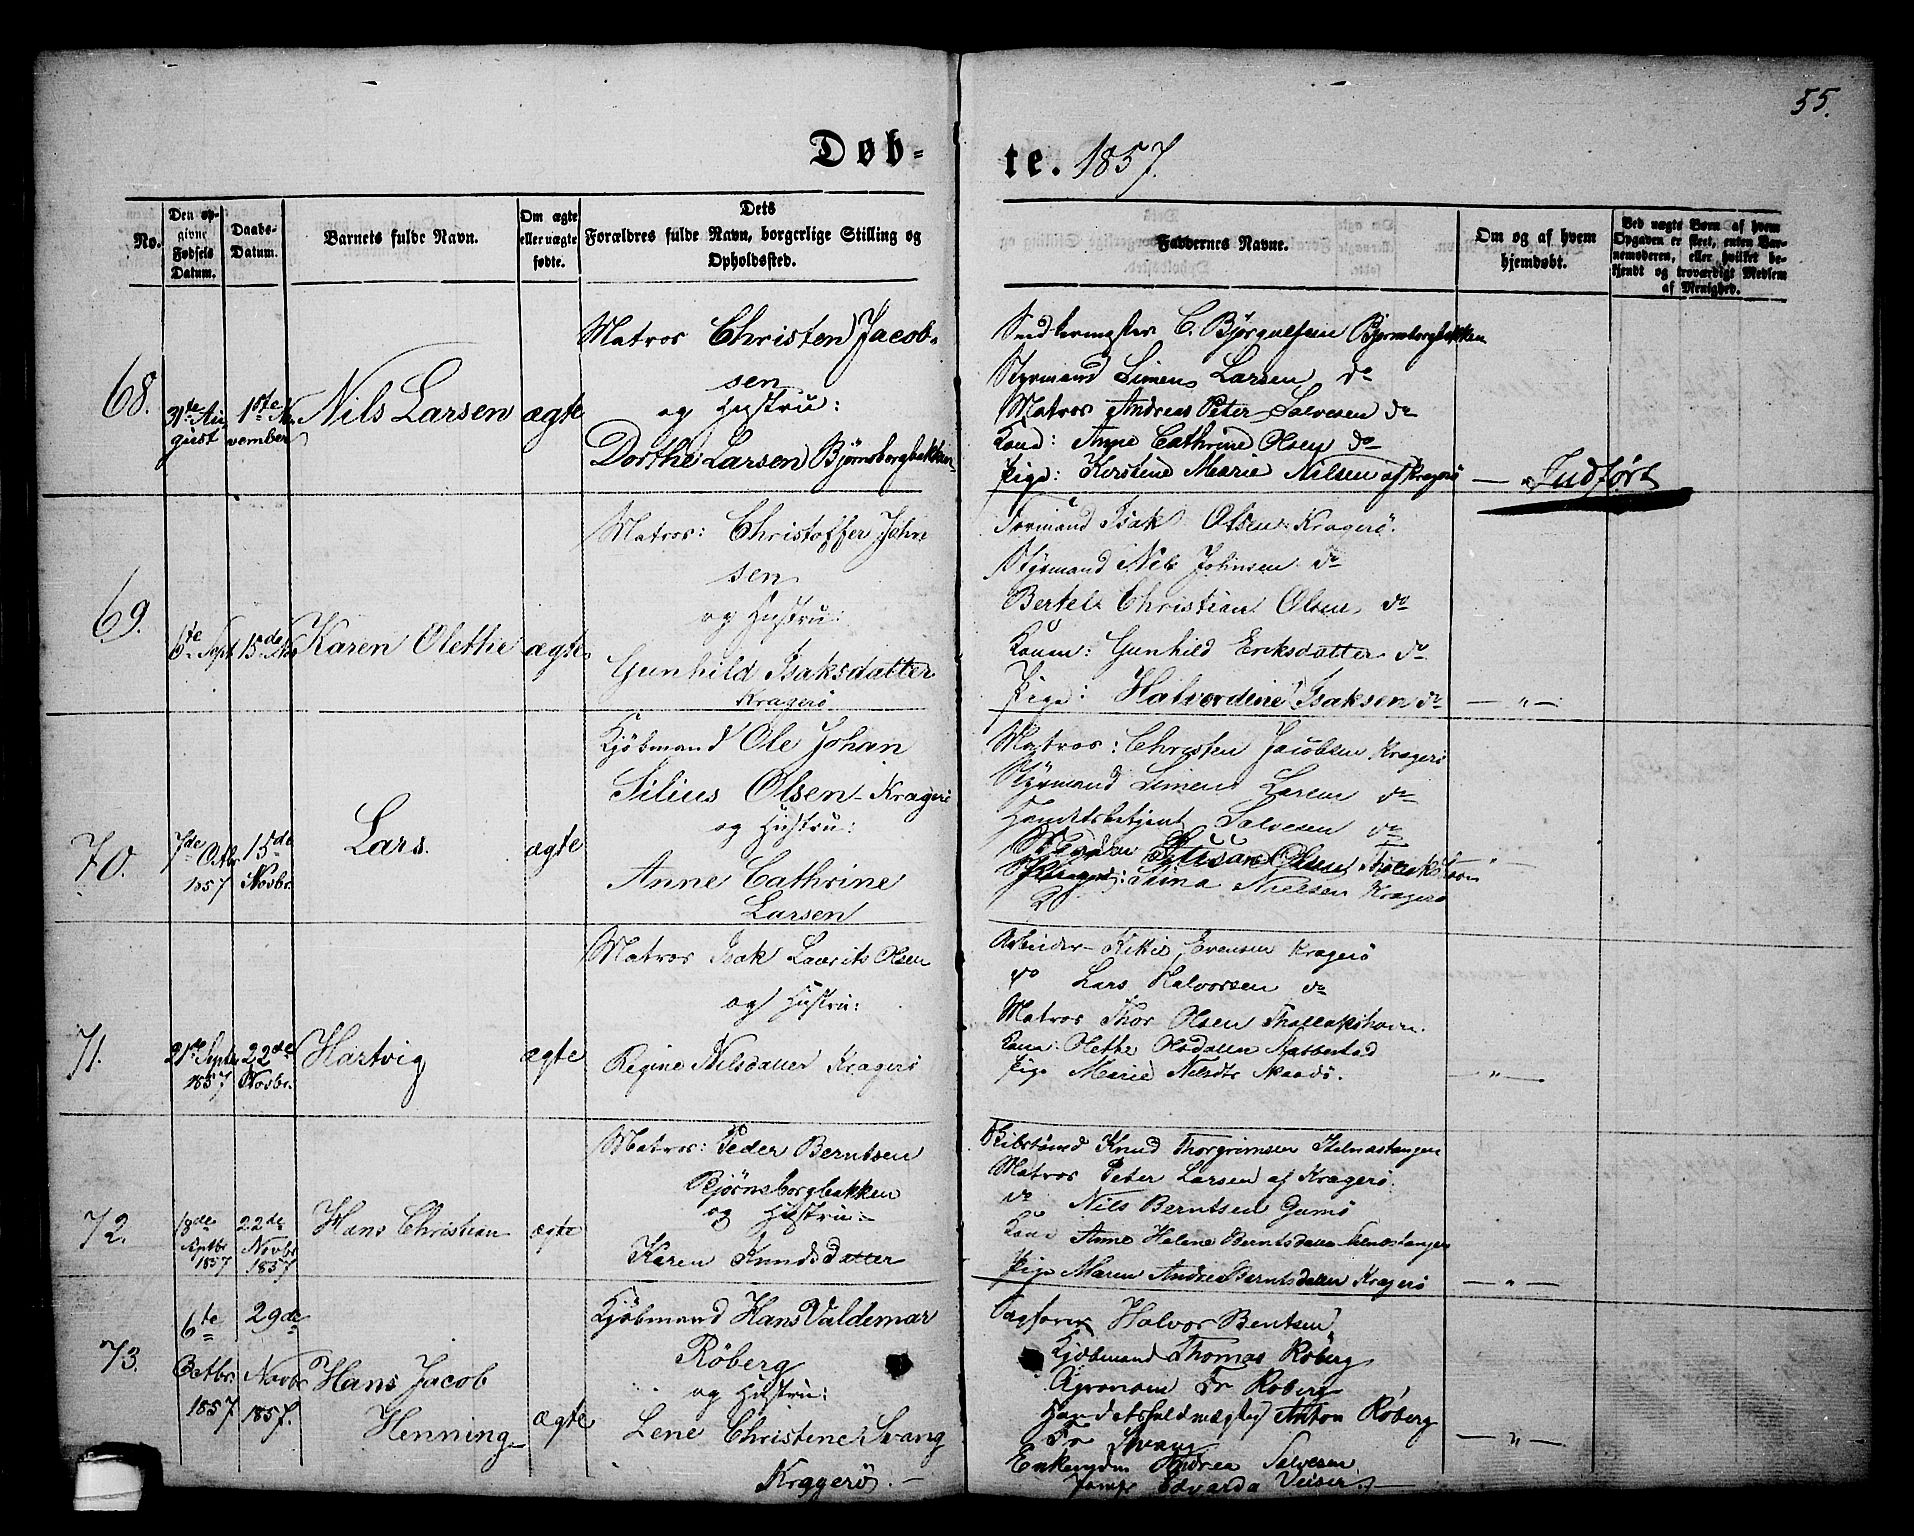 55.
Døb-
te. 1857.
No.
Den op-
givne
Fødsels
Datum.
Daabs-
Datum.
Barnets fulde Navn.
Om ægte
eller uægte
fødte.
Dets
Forældres fulde Navn, borgerlige Stilling og
Opholdssted.
Faddernes Navne.
Om og af hvem
hjemdøbt.
Ved uægte Børn af hvem
Opgaven er skeet, enten Bar-
nemoderen, eller hvilket be-
kjendt og troværdigt Medlem
af Menighed.
68.
31te Au
gust
1ste No
vember
Nils Larsen
ægte
Matros Christen Jacob-
sen
og Hustru:
Dorthe Larsen Bjørnsborgbakken
C. Bjørgulfsen Bjørnsborgbakken
Styrmand Simen Larsen do
Matros Andreas Peter Salvesen do
Kone: Anne Cathrine Olsen do
Pige: Kirstine Marie Nilsen af Kragerö
— Indført
69.
6te Sept
15de Nov
Karen Olettie
ægte
Matros: Christoffer John
sen
og Hustru:
Gunhild Isaksdatter
Kragerö
Formand Isak Olsen Kragerö.
Styrmand Nils Johnsen do
Bertel Christian Olsen do
Konen: Gunhild Eriksdatter do
Pige: Halvordine Isaksen do
— " —
70.
7de Octbr
1857
15de
Novbr.
Lars.
ægte
Kjöbmand Ole Johan
Silius Olsen - Kragerö
og Hustru:
Anne Cathrine
Larsen
Matros: Christen Jacobsen Kragerö
Styrmand Simen Larsen do
Handelsbetjent Salvesen do
Olsen
Stina Nielsen Kragerö
" —
71.
21de Septbr
1857
22de
Novbr.
Hartvig
ægte
Matros Isak Laurits Olsen
og Hustru:
Regine Nilsdatter Kragerö
Arbeider Kittil Evensen Kragerö
do Lars Halvorsen do
Matros Thor Olsen Thallakshavn.
Kone: Olethe Olsdatter
Pige Marie Nilsdtr Skaadö.
— " —
72.
18de
Septbr
1857
22de
Novbr
1857
Hans Christian
ægte
Matros: Peder Berntsen
Bjørnsborgbakken
og Hustru
Karen Knudsdatter
Knud Thorgrimsen
Matros Peter Larsen af Kragerö.
do Nils Berntsen Gumö
Kone Anne Helene Berntsdatter
Pige Maren Andrea Berntsdatter Kragerö
— " —
73.
6te
Octbr.
1857
29de
Novbr
1857.
Hans Jacob
Henning
ægte
Kjöbmand Hans Valdemar
Röberg
og Hustru:
Lene Christine Svang
Kragerö. -
Halvor Bentsen
Kjöbmand Thomas Röberg
Agronom Fr Roberg
Handelsfuldmægtig Anton Röberg
Fr Svang
Andrea Salvesen
Jomfr Edvarda
— " —